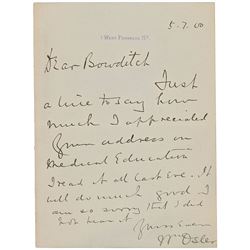 5.7.00
1 West Franklin St.
Dear Bowditch
Just
a line to say how
much I appreciated
your address on
Medical Education
I read it all last Eve. It
will do much good I
am so sorry that I did
not hear it
Yours Ever
Wm Osler